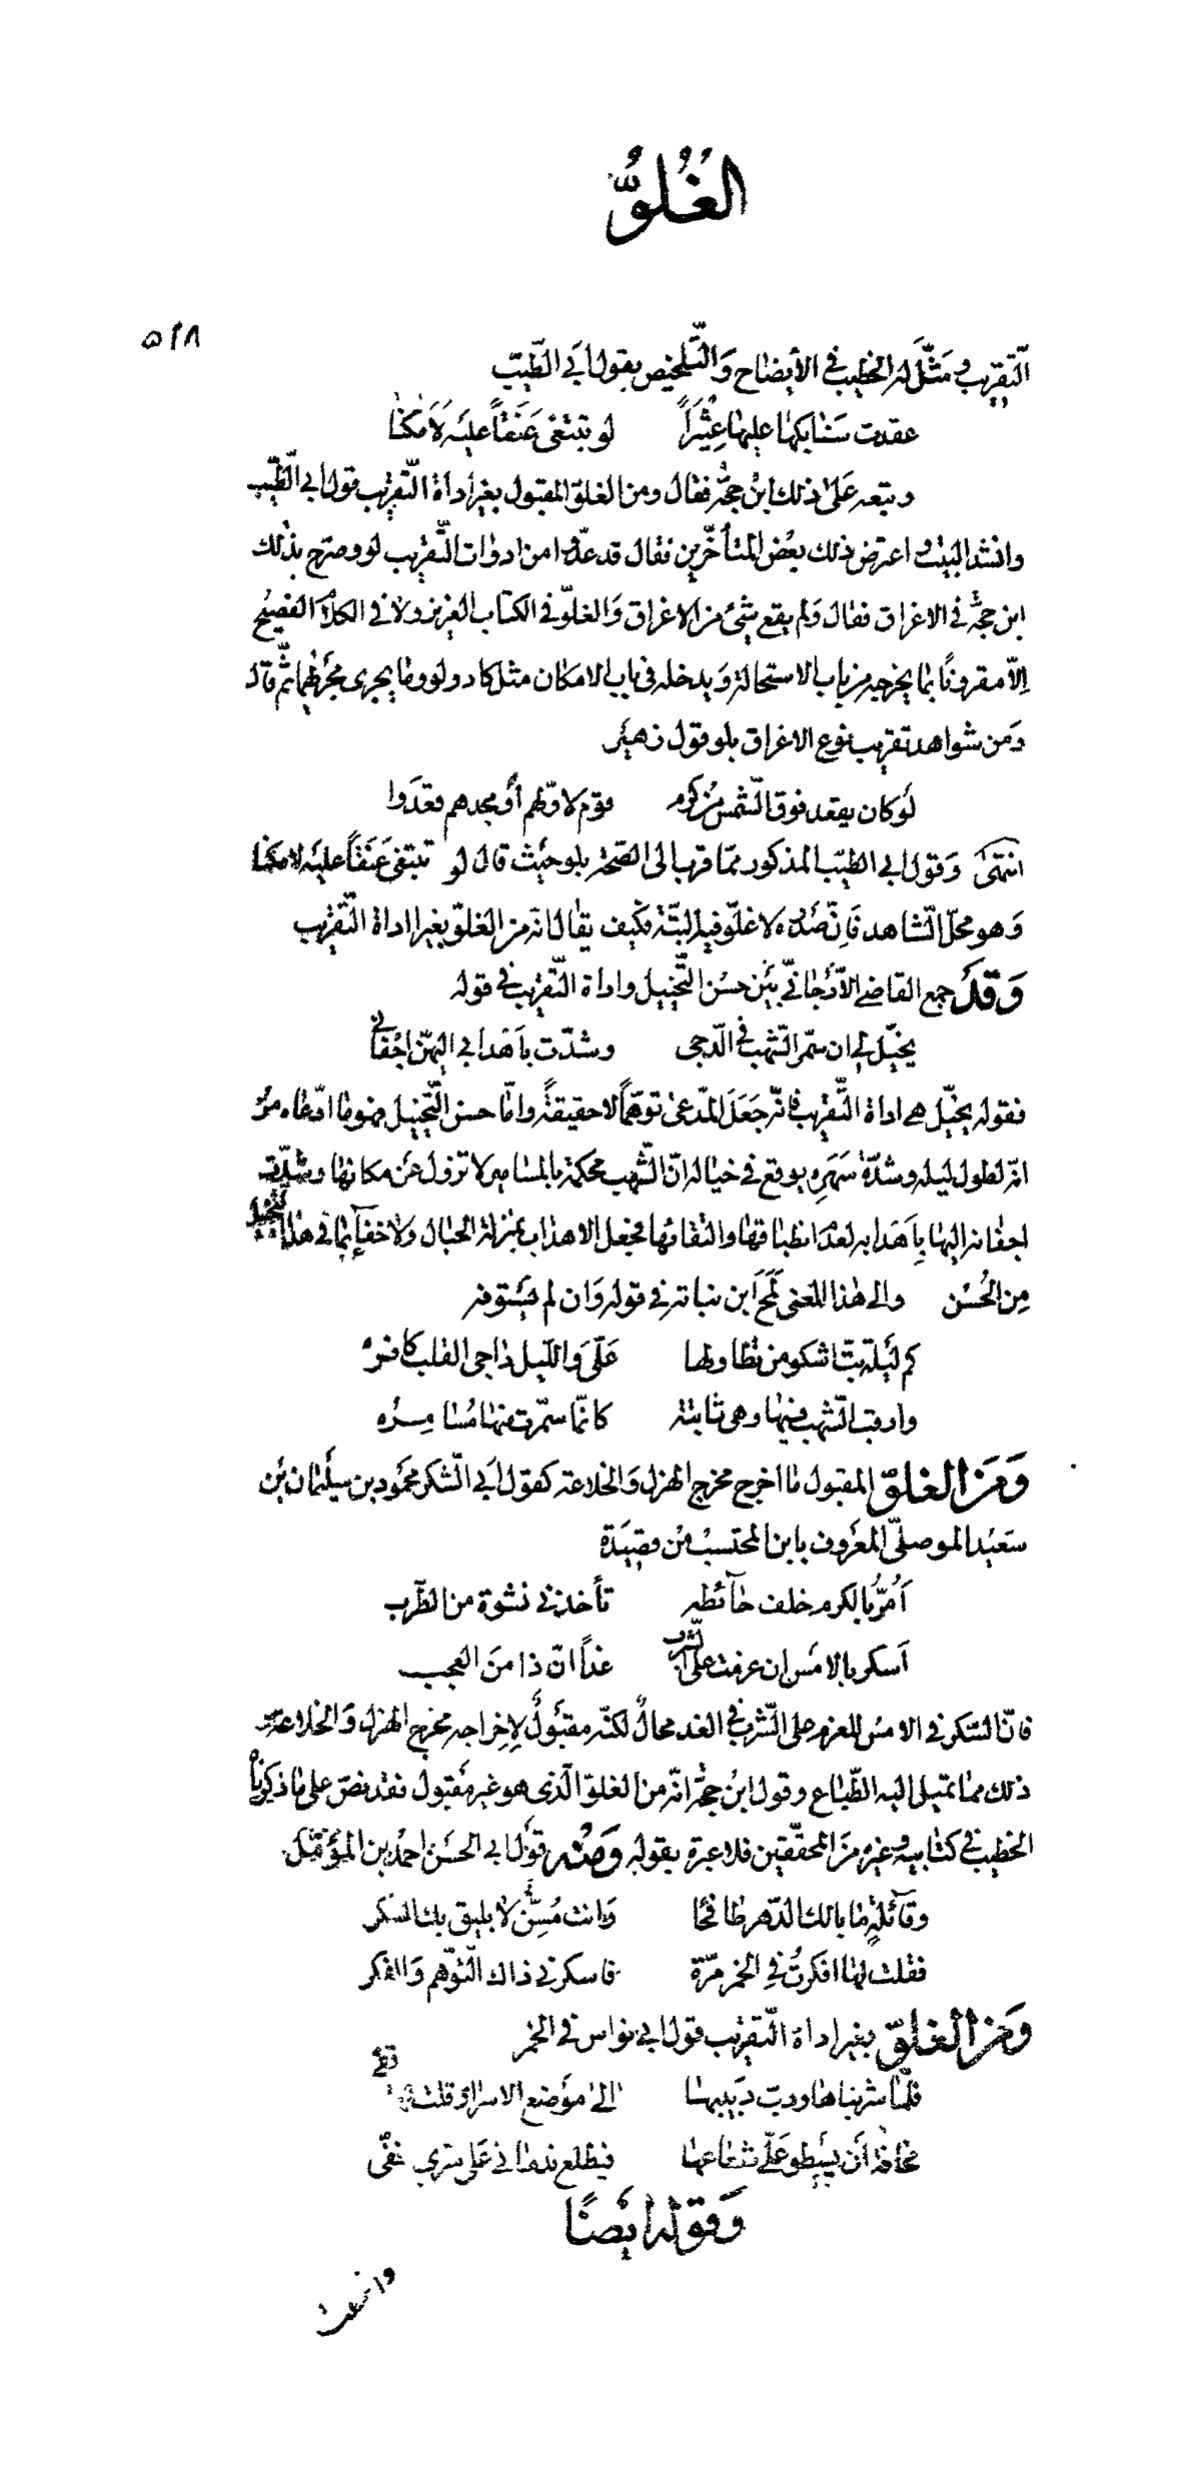 الغُلوُّ
٥٢٨
التّقريب ومَثَّلَ له الخطيب في الأيضاح وَالتّلخيص بقول ابي الطّيّب
عقدت سَنابكها عليها عِثْيَراً لو تبتغى عَنَقاً عليَه لَأَمكنا
وتبعه عَلىٰ ذلك ابنُ حجّة فقال ومن الغلوّ المقبول بغير أداة التّقريب قول ابي الطّيّب
وانشد البيت واعترض ذلك بعْض المتأخّرين فقال قد عدّوا من ادوات التّقريب لو وصرّح بذلك
ابن حجّة في الاغراق فقال وَلم يقع شئ من الاغراق وَالغلوّ في الكتاب العزيز ولا في الكلام الفصيْح
اِلاّ مقرونًا بما يخرجه من باب الاستحالة وَيدخله في باب الامكان مثل كاد ولو وما يجرى مجرٰهما ثمّ قال
وَمن شواهد تقريب نوع الاغراق بلو قول زهيَر
لَو كان يقعد فوق الشّمس مِن كرم قوم لاوّلهم أو مجدهم قعَدَوا
انتهَىٰ وَقول ابي الطيّب المذكور ممّا قرب الى الصّحّة بلو حيَث قال لو تبتغى عَنَقاً عليَه لامكنا
وَهو محلّ الشّاهد فَاِنّ صَدره لا غلوّ فيه البتّة فكيف يقال انّه من الغلوّ بغير اداة التّقريب
وَقَد جمع القاضي الاَرّجانيّ بيَن حسْن التّخييل واداة التّقريب في قوله
يخيّل لي ان سمّر الشّهب في الدّجى وشدّت باَهدابي اليهنّ اجْفاني
فقوله يخيّل هي اداة التّقريب فانّه جَعَلَ المدّعىٰ توهّماً لا حقيقةً وامّا حسن التّخييل فهو ما ادّعاه من
انّه لطول ليله وشدّة سَهَرِه يوقع في خياله انّ الشّهب محكمة بالمسامير لا تزول عن مكانها وشدّت
اجفانه اليها باَهدابه لعدَم انطباقها والتقائها فجعل الاهداب بمنزلة الحبال ولا خفآء بما في هذا التّخييل
مِن الحُسْن والى هٰذا المعنى لَمَحَ ابن نباتة في قوله وَان لم يسَتوفه
كم ليَلة بتّ اشكو من تطاولها عَلَىّ وَاللّيل داجى القلب كافرهُ
وارقب الشّهب فيها وهي ثابتة كانّما سمّرت منها مُسامِـرُه
وَمَنَ الغلوّ المقبول ما اخرج مخرج الهزل وَالخلاعة كقول اَبي الشّكر محمَود بن سليَمان بن
سعَيد الموصلىّ المعرَوف بابن المحتسبْ من قصِيَدة
اَمُرُّ بالكرم خلف حآئطه تأخذني نشوة من الطّرب
اَسكر بالامَس ان عزمت على الشّرب غداً انّ ذا منَ العجب
فانّ السّكر في الامس للعزم على الشّرب في الغد محالٌ لكنّه مقبُولٌ لِاِخراجه مخرج الهزل وَالخلاعة
ذلك ممّا تميل اليه الطّباع وقول ابنُ حجّة انّه من الغلوّ الّذى هو غير مقَبول فقد نصّ على ما ذكرناهُ
الخطيب في كتابيه وغيره مَن المحقّقين فلا عبرة بقوله وَمنْه قوَل ابي الحسَن احمد بن المؤمّل
وقآئلةٍ ما بالك الدّهر طافحًا وَانت مُسِنٌّ لا يليق بك السّكر
فقلت لها افكرتُ في الخمر مرّة فاسكرني ذاك التّوّهم وَالفكر
وَمَن الغلوّ بغير اداة التّقريب قول ابي نواس في الخمر
فلّما شربناها ودبّ دَبيبها الىٰ موَضع الاسرار قلت لها قفي
مخافة اَن يسَطو عَلَيّ شعاعها فيطلع ندماني عَلى سري خفّى
وَقوله ايَضًا
وانعت